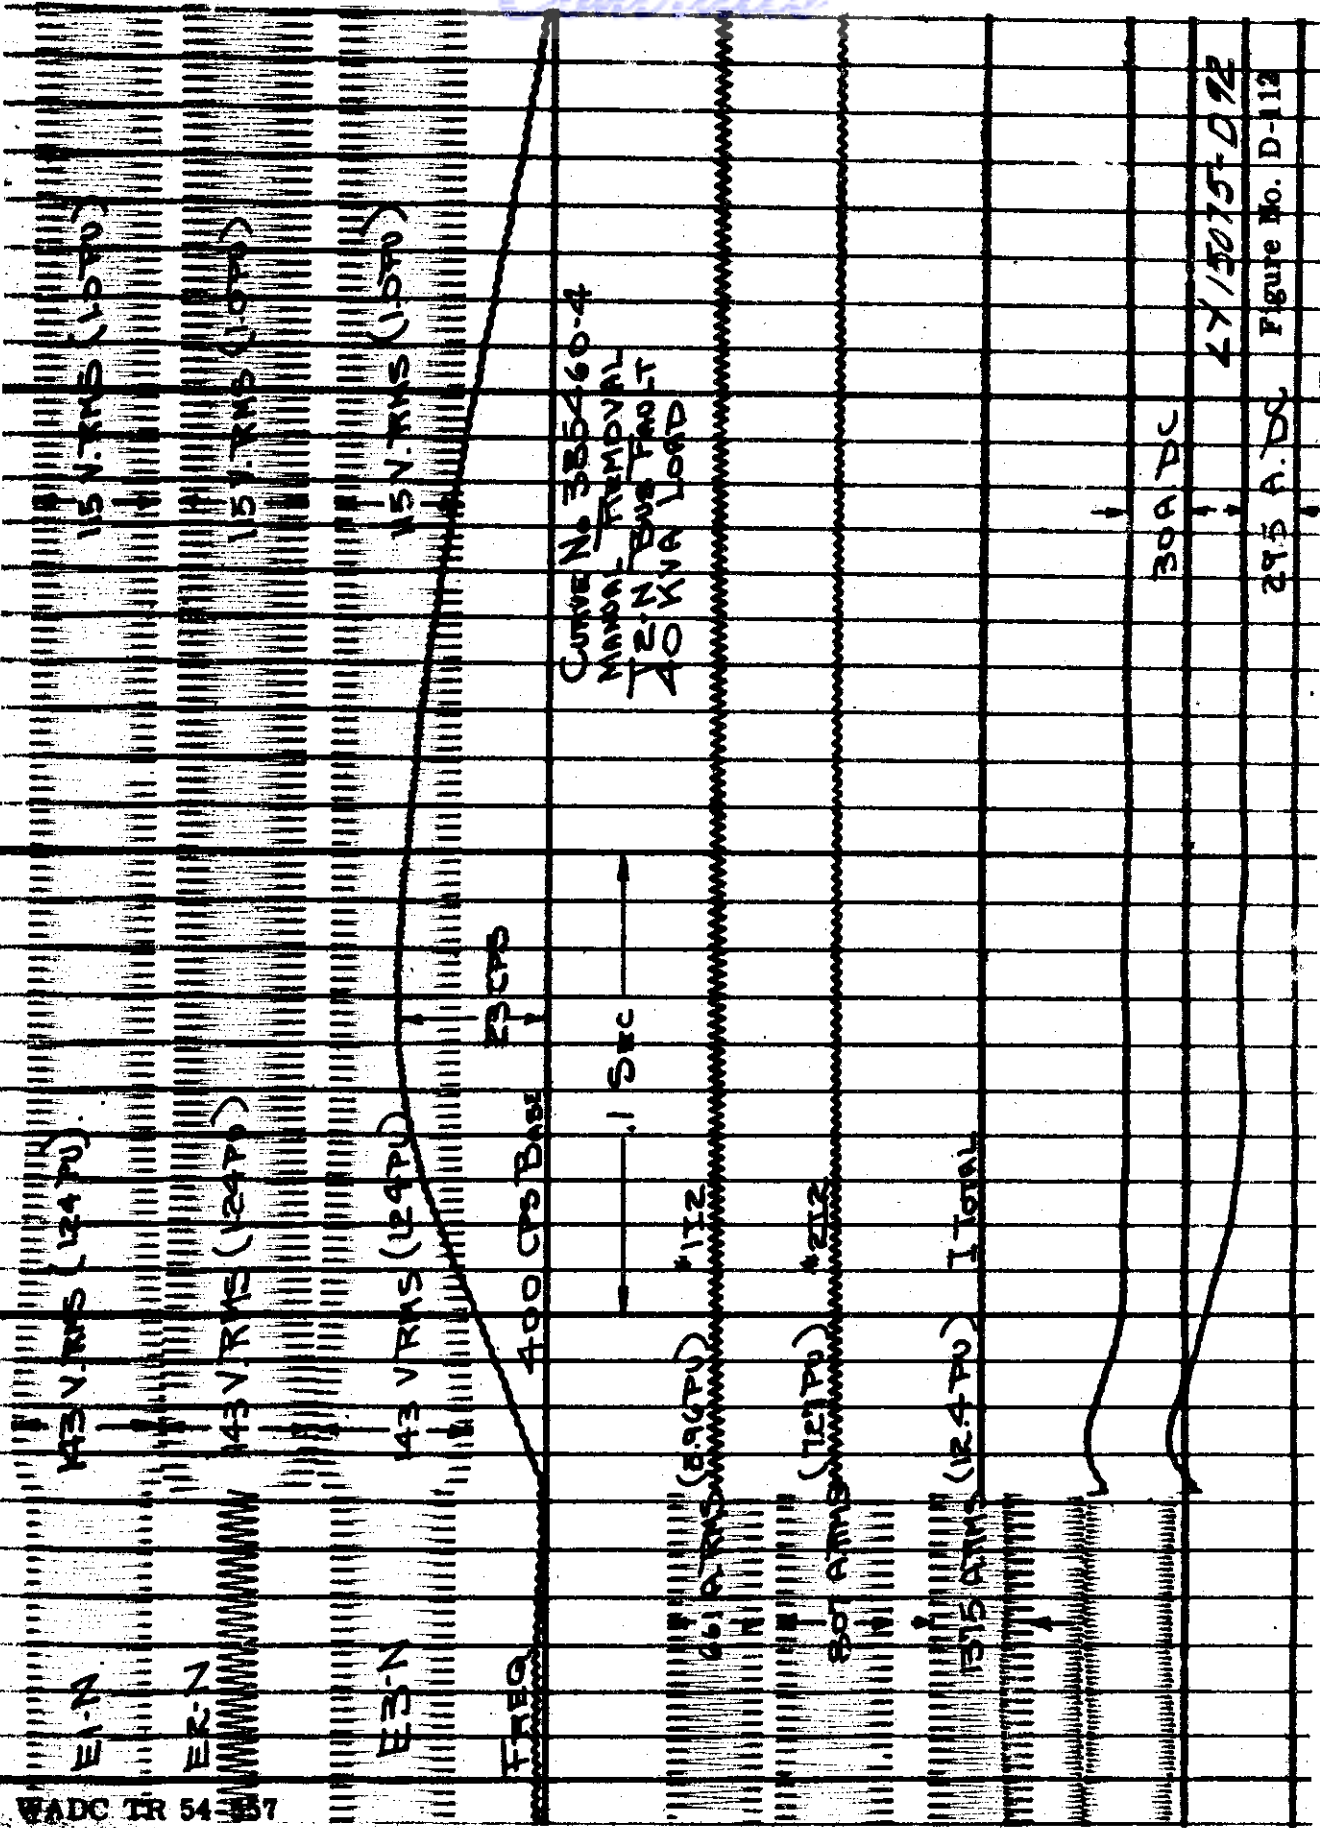 E1-N
143 V. RMS (1.24 PU)
115 V. RMS (1.0 PU)
E2-N
143 V. RMS (1.24 PU)
115 V. RMS (1.0 PU)
E3-N
143 V RMS (1.24 PU)
115 V. RMS (1.0 PU)
FREQ
400 CPS BASE
23 CPS
CURVE No 385460-4
MANUAL REMOVAL
T2-N BUS FAULT
40 KVA LOAD
.1 SEC
#1T2
661 A RMS
#2T2
807 A RMS (7.27 PU)
I TOTAL
1375 A RMS (12.4 PU)
30 A. DC
29.5 A. DC
LY 15075-D92
Figure No. D-112
WADC TR 54-557